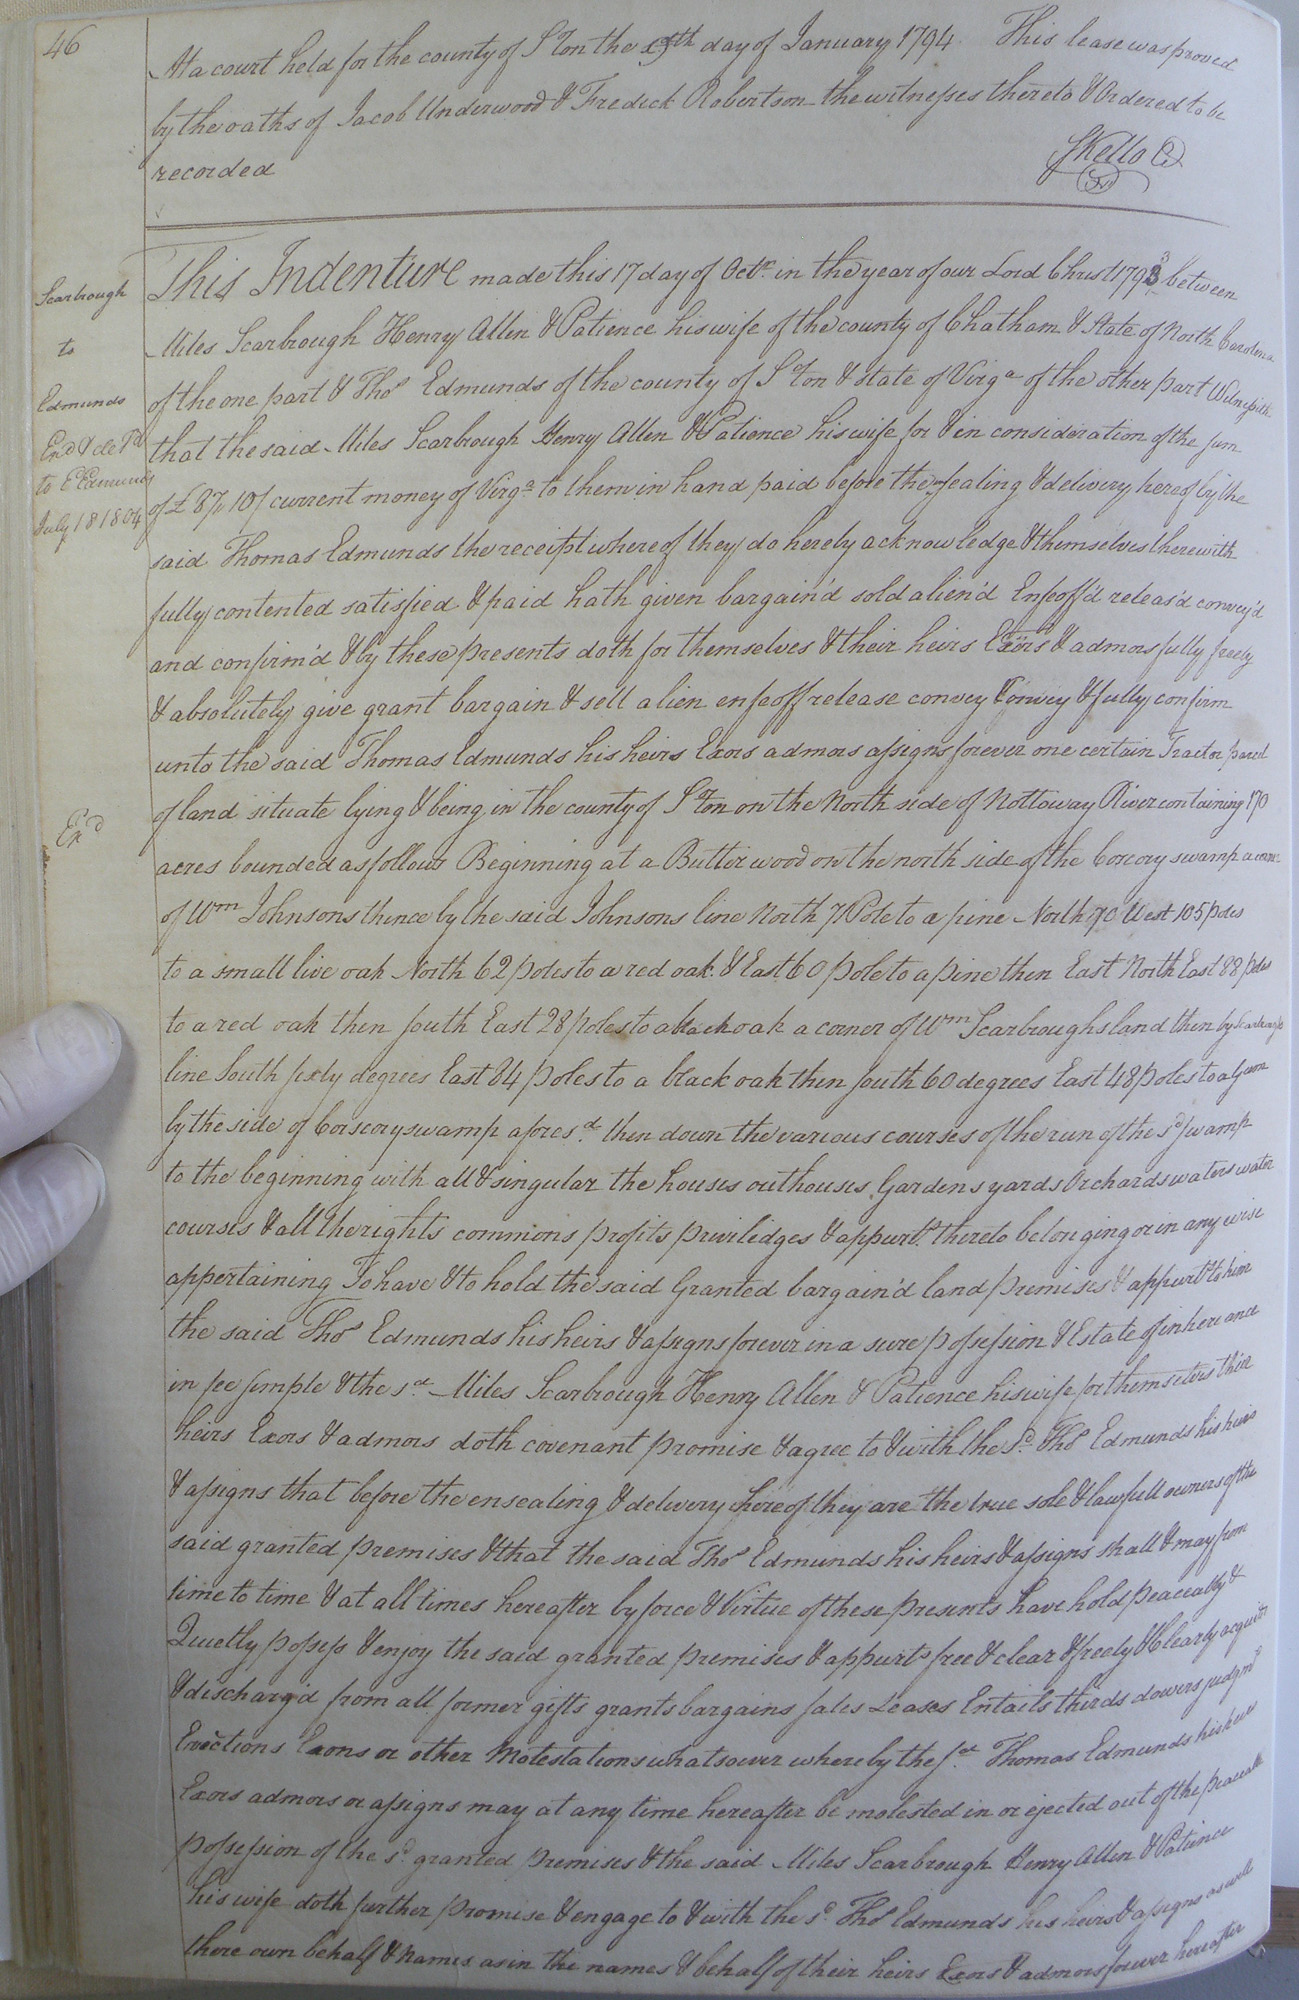 46
At a court held for the county of S'ton the 9th day of January 1794 This lease was proved
by the oaths of Jacob Underwood & Fredick Robertson the witnesses thereto & Ordered to be
recorded
SKello C
This Indenture made this 17 day of Octr. in the year of our Lord Christ 1793 between
Scarbrough
to
Edmunds
Miles Scarbrough Henry Allen & Patience his wife of the county of Chatham & State of North Carolina
of the one part & Thos Edmunds of the county of S'ton & state of Virga of the other part Witnesseth
Exd & deld
to E Edmunds
July 18 1804
that the said Miles Scarbrough Henry Allen & Patience his wife for & in consideration of the sum
of £87,10/ current money of Virga to them in hand paid before the sealing & delivery hereof by the
said Thomas Edmunds the receipt whereof they do hereby acknowledge & themselves therewith
fully contented satisfied & paid hath given bargain'd sold alien'd Enfeoff'd releas'd convey'd
and confirm'd & by these presents doth for themselves & their heirs Exors & admors fully freely
& absolutely give grant bargain & sell alien enfeoff release convey & convey & fully confirm
unto the said Thomas Edmunds his heirs Exors admors assigns forever one certain Tract or parcel
of land situate lying & being in the county of S'ton on the North side of Nottoway River containing 170
Exd
acres bounded as follows Beginning at a Butter wood on the north side of the Corcory swamp a corner
of Wm Johnsons thence by the said Johnsons line North 71 Pole to a pine North 70 West 105 poles
to a small live oak North 62 poles to a red oak & East 60 pole to a pine then East North East 88 poles
to a red oak then south East 28 poles to a black oak a corner of Wm Scarbroughs land then by Scarbroughs
line South sixty degrees East 84 poles to a black oak then south 60 degrees East 48 poles to a Gum
by the side of Corscory swamp aforesd. then down the various courses of the run of the sd swamp
to the beginning with all & singular the houses outhouses Gardens yards Orchards waters water
courses & all the rights commons profits priviledges & appurts. thereto belonging or in any wise
appertaining To have & to hold the said Granted bargain'd land premises & appurts to him
the said Thos Edmunds his heirs & assigns forever in a sure possession & Estate of inheriance
in fee simple & the sd. Miles Scarbrough Henry Allen & Patience his wife for themselves thier
heirs Exors & admors doth covenant promise & agree to & with the Sd. Thos Edmunds his heirs
& assigns that before the ensealing & delivery hereof they are the true sole & lawfull owners of the
said granted premises & that the said Thos Edmunds his heirs & assigns shall & may from
time to time & at all times hereafter by force & Virtue of these presents have hold peaceably &
Quietly possess & enjoy the said granted premises & appurts free & clear & freely & Clearly acquitd
& discharg'd from all former gifts grants bargains sales Leases Entails thirds dowers judgmts
Evictions Exons or other Molestations whatsoever whereby the sd. Thomas Edmunds his heirs
Exors admors or assigns may at any time hereafter be molested in or ejected out of the peaceable
possession of the sd. granted premises & the said Miles Scarbrough Henry Allen & Patience
his wife doth further promise & engage to & with the sd. Thos Edmunds his heirs & assigns as well
there own behalf & names as in the names & behalf of their heirs Exors & admors forever hereafter